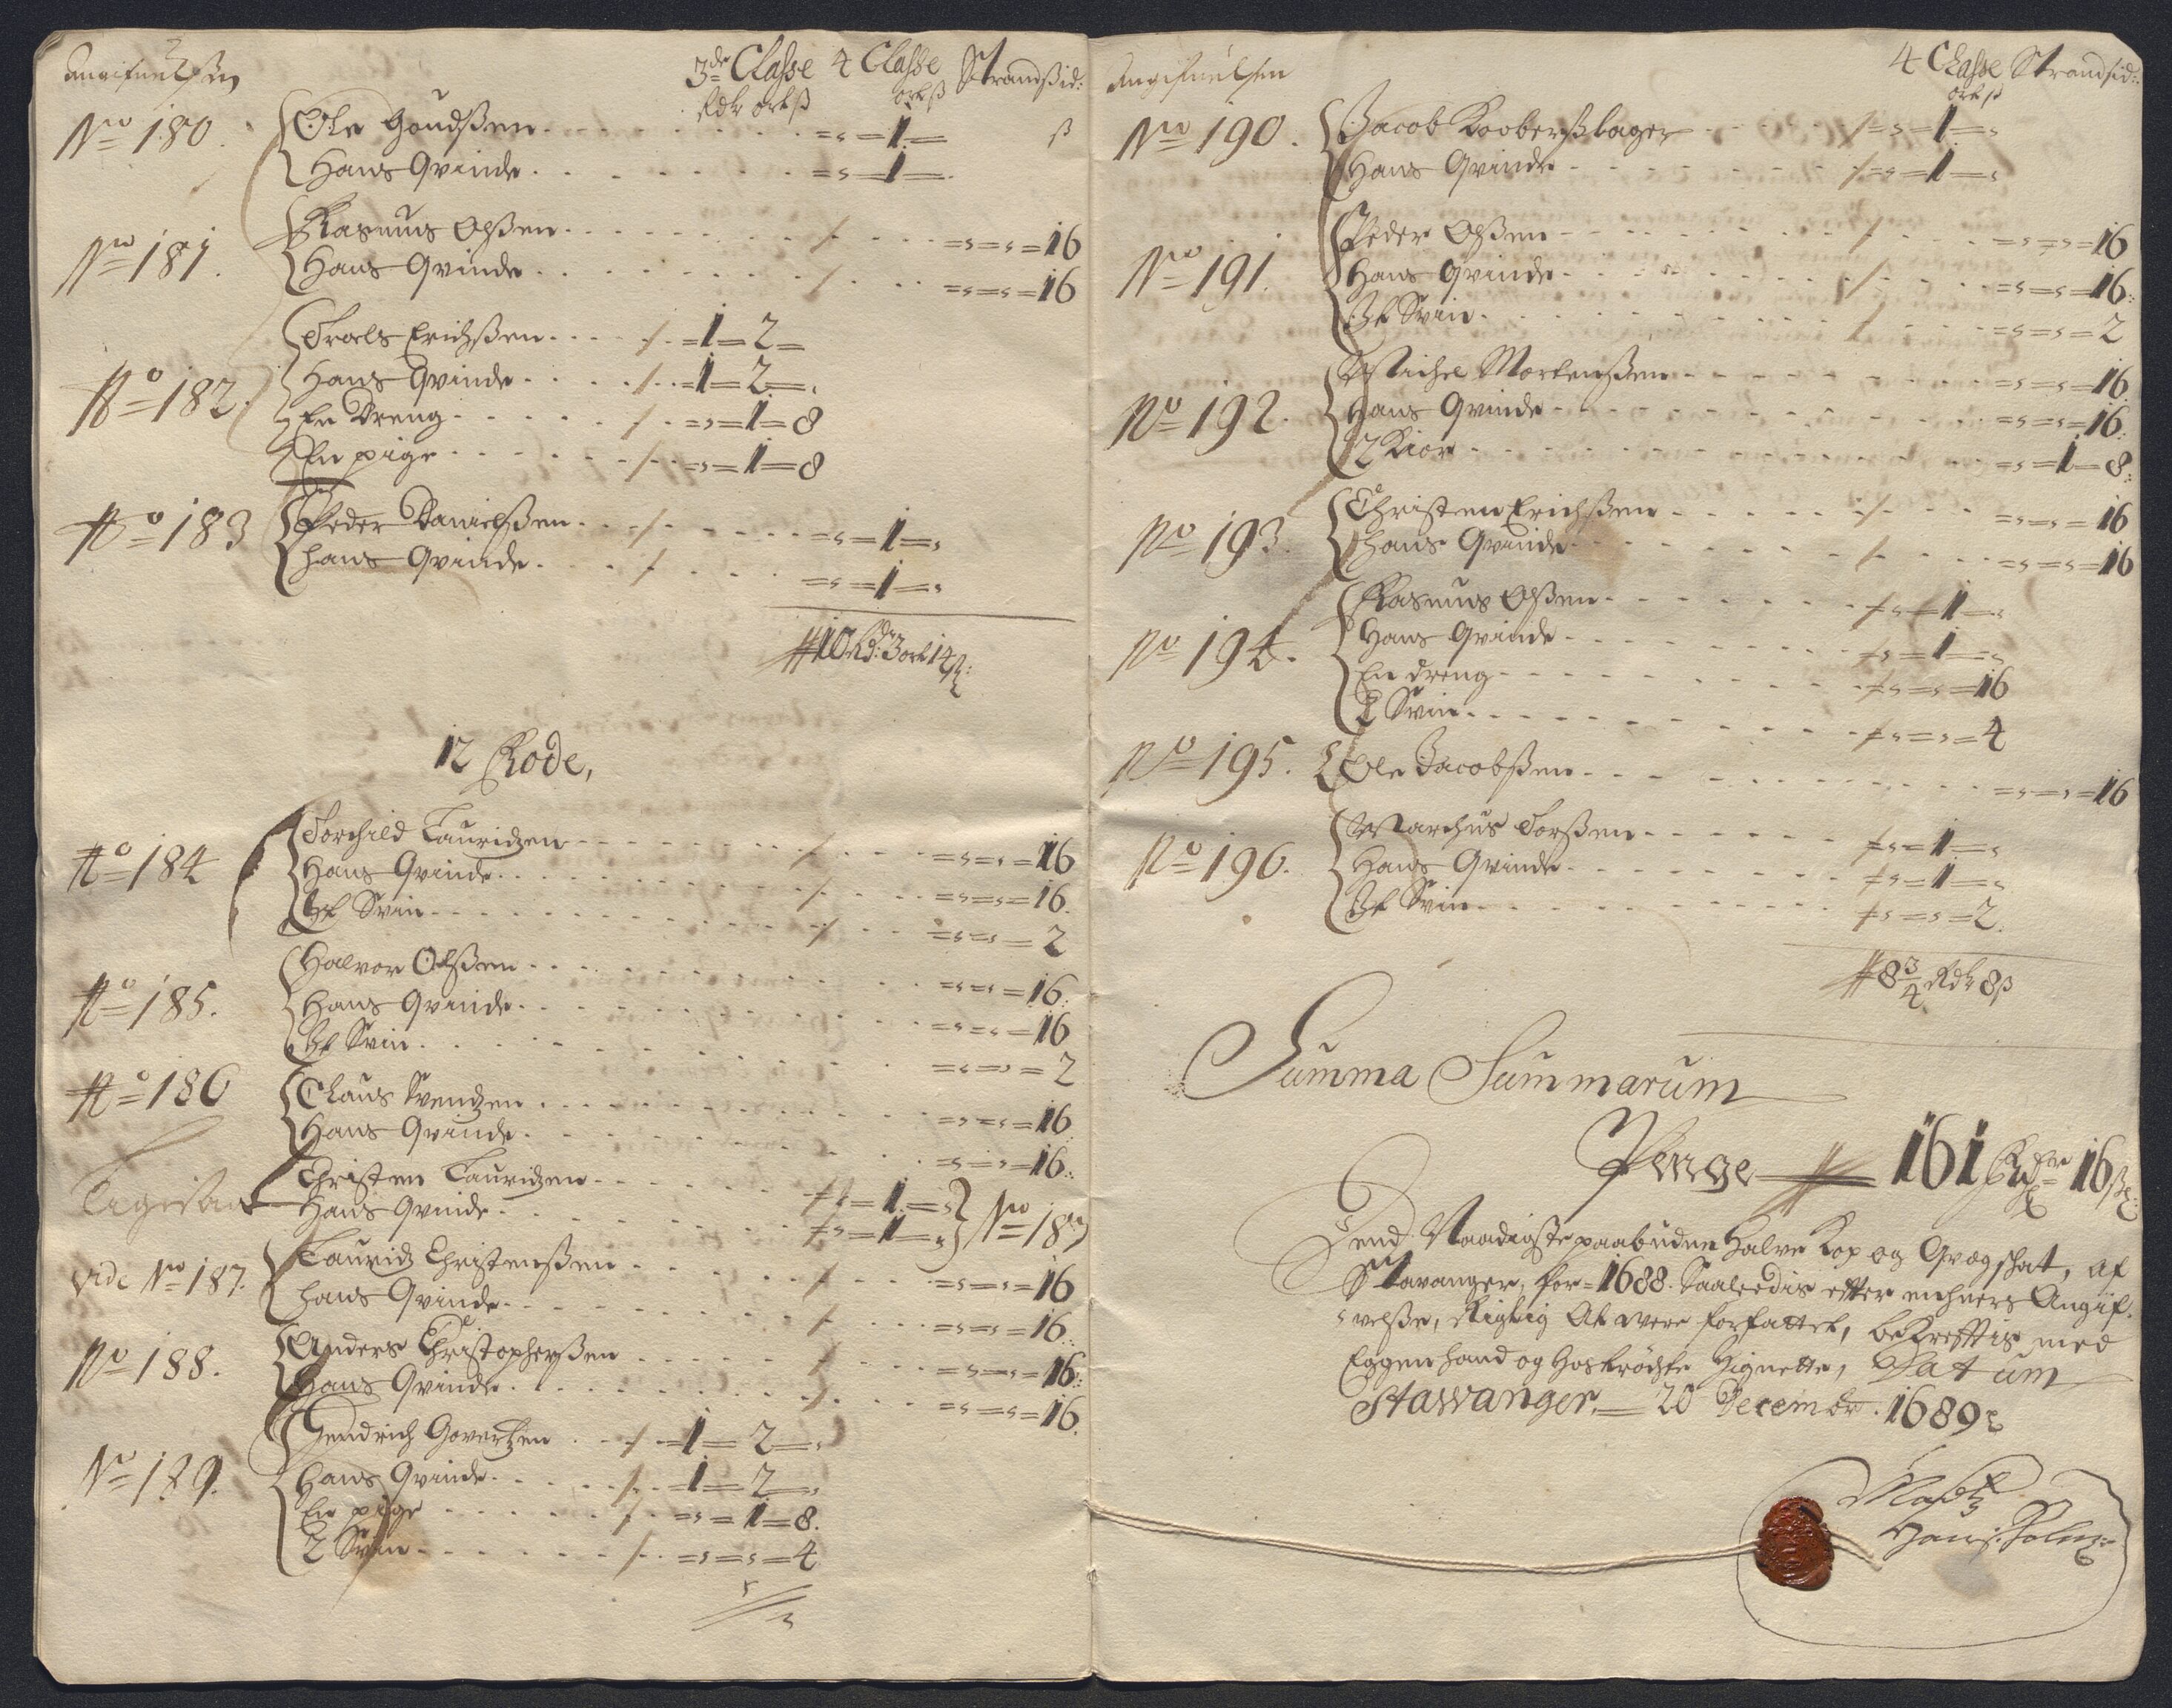 Angifuelsen 3de Classe 4 Classe Strandsid:
Rdr ort ß ort ß ß
No 180. Ole Goudßen - - - = s = 1 =
Hans Qvinde - - - = s = 1 =
No 181. Rasmus Olßen - - - = s = s = 16
Hans Qvinde - - - = s = s = 16
No 182. Troels Erichßen - - - / - = 1 = 2 =
Hans Qvinde - - - / - = 1 = 2 =
En Dreng - - - / - = s = 1 = 8
En pige - - - / - = s = 1 = 8
No 183 Peder Danielßen - - - / - - = s = 1 = s
hans Qvinde - - - / - - = s = 1 = s
10 Rd: 3 ort 14 ß:
12 Rode,
No 184 Torchild Lauridzen - - - / - - = s = s = 16
Hans Qvinde - - - / - - = s = s = 16.
Et Svin - - - / - - = s = s = 2
No 185. Halvor Olßen - - - = s = s = 16:
Hans Qvinde - - - = s = s = 16
Et Svin - - - = s = s = 2
No 186 Claus Svendzen - - - = s = s = 16
Hans Qvinde - - - = s = s = 16:
Christen Lauridzen - - - / s = 1 = s
Hans Qvinde - - - / s = 1 = s No 187
vide No 187. Lauridz Christenßen - - - / - - = s = s = 16
hans Qvinde - - - / - - = s = s = 16:
No 188. Anders Christopherßen - - - / - - = s = s = 16:
Hans Qvinde - - - / - - = s = s = 16.
No 189. Hendrich Govertzen - - / - = 1 = 2 = s
Hans Qvinde - - - / - = 1 = 2 = s
En pige - - - / - = s = 1 = 8.
2 Svin - - - / - = s = s = 4
Angifuelsen 4 Classe Strandsid:
ort ß
No 190. Jacob Kaaberßlager - - - / = s = 1 = s
Hans Qvinde - - - / = s = 1 = s
No 191. Peder Olßen - - - / - - = s = s = 16
Hans Qvinde - - - / - - = s = s = 16:
Et Svin - - - / - - = s = s = 2
No 192. Michel Mortenßen - - - = s = s = 16.
Hans Qvinde - - - = s = s = 16:
2 Kiør - - - = s = 1 = 8:
No 193. Christen Erichßen - - - / - - = s = s = 16
hans Qvinde - - - / - - = s = s = 16
No 194. Rasmus Olßen - - - / s = 1 = s
Hans Qvinde - - - / s = 1 = s
En dreng - - - / s = s = 16
2 Svin - - - / s = s = 4
No 195. Ole Jacobßen - - - = s = s = 16
No 196. Marchus Torßen - - - / s = 1 = s
Hans Qvinde - - - / s = 1 = s
Et Svin - - - / s = s = 2.
8 3/4 Rdr 8 ß
Summa Summarum
Penge 161 Rdr 16 ß:
Dend Naadigste paabudne Halve Kop og Qvægschat, af
Stavanger, for 1688. Saaledis efter enhvers Angif-
velße, Rigtig At være forfattet, bekreftis med
Eggen haand og hoströgte Zignette, Datum
Stawanger, 20 Decembr. 1689
Hans: